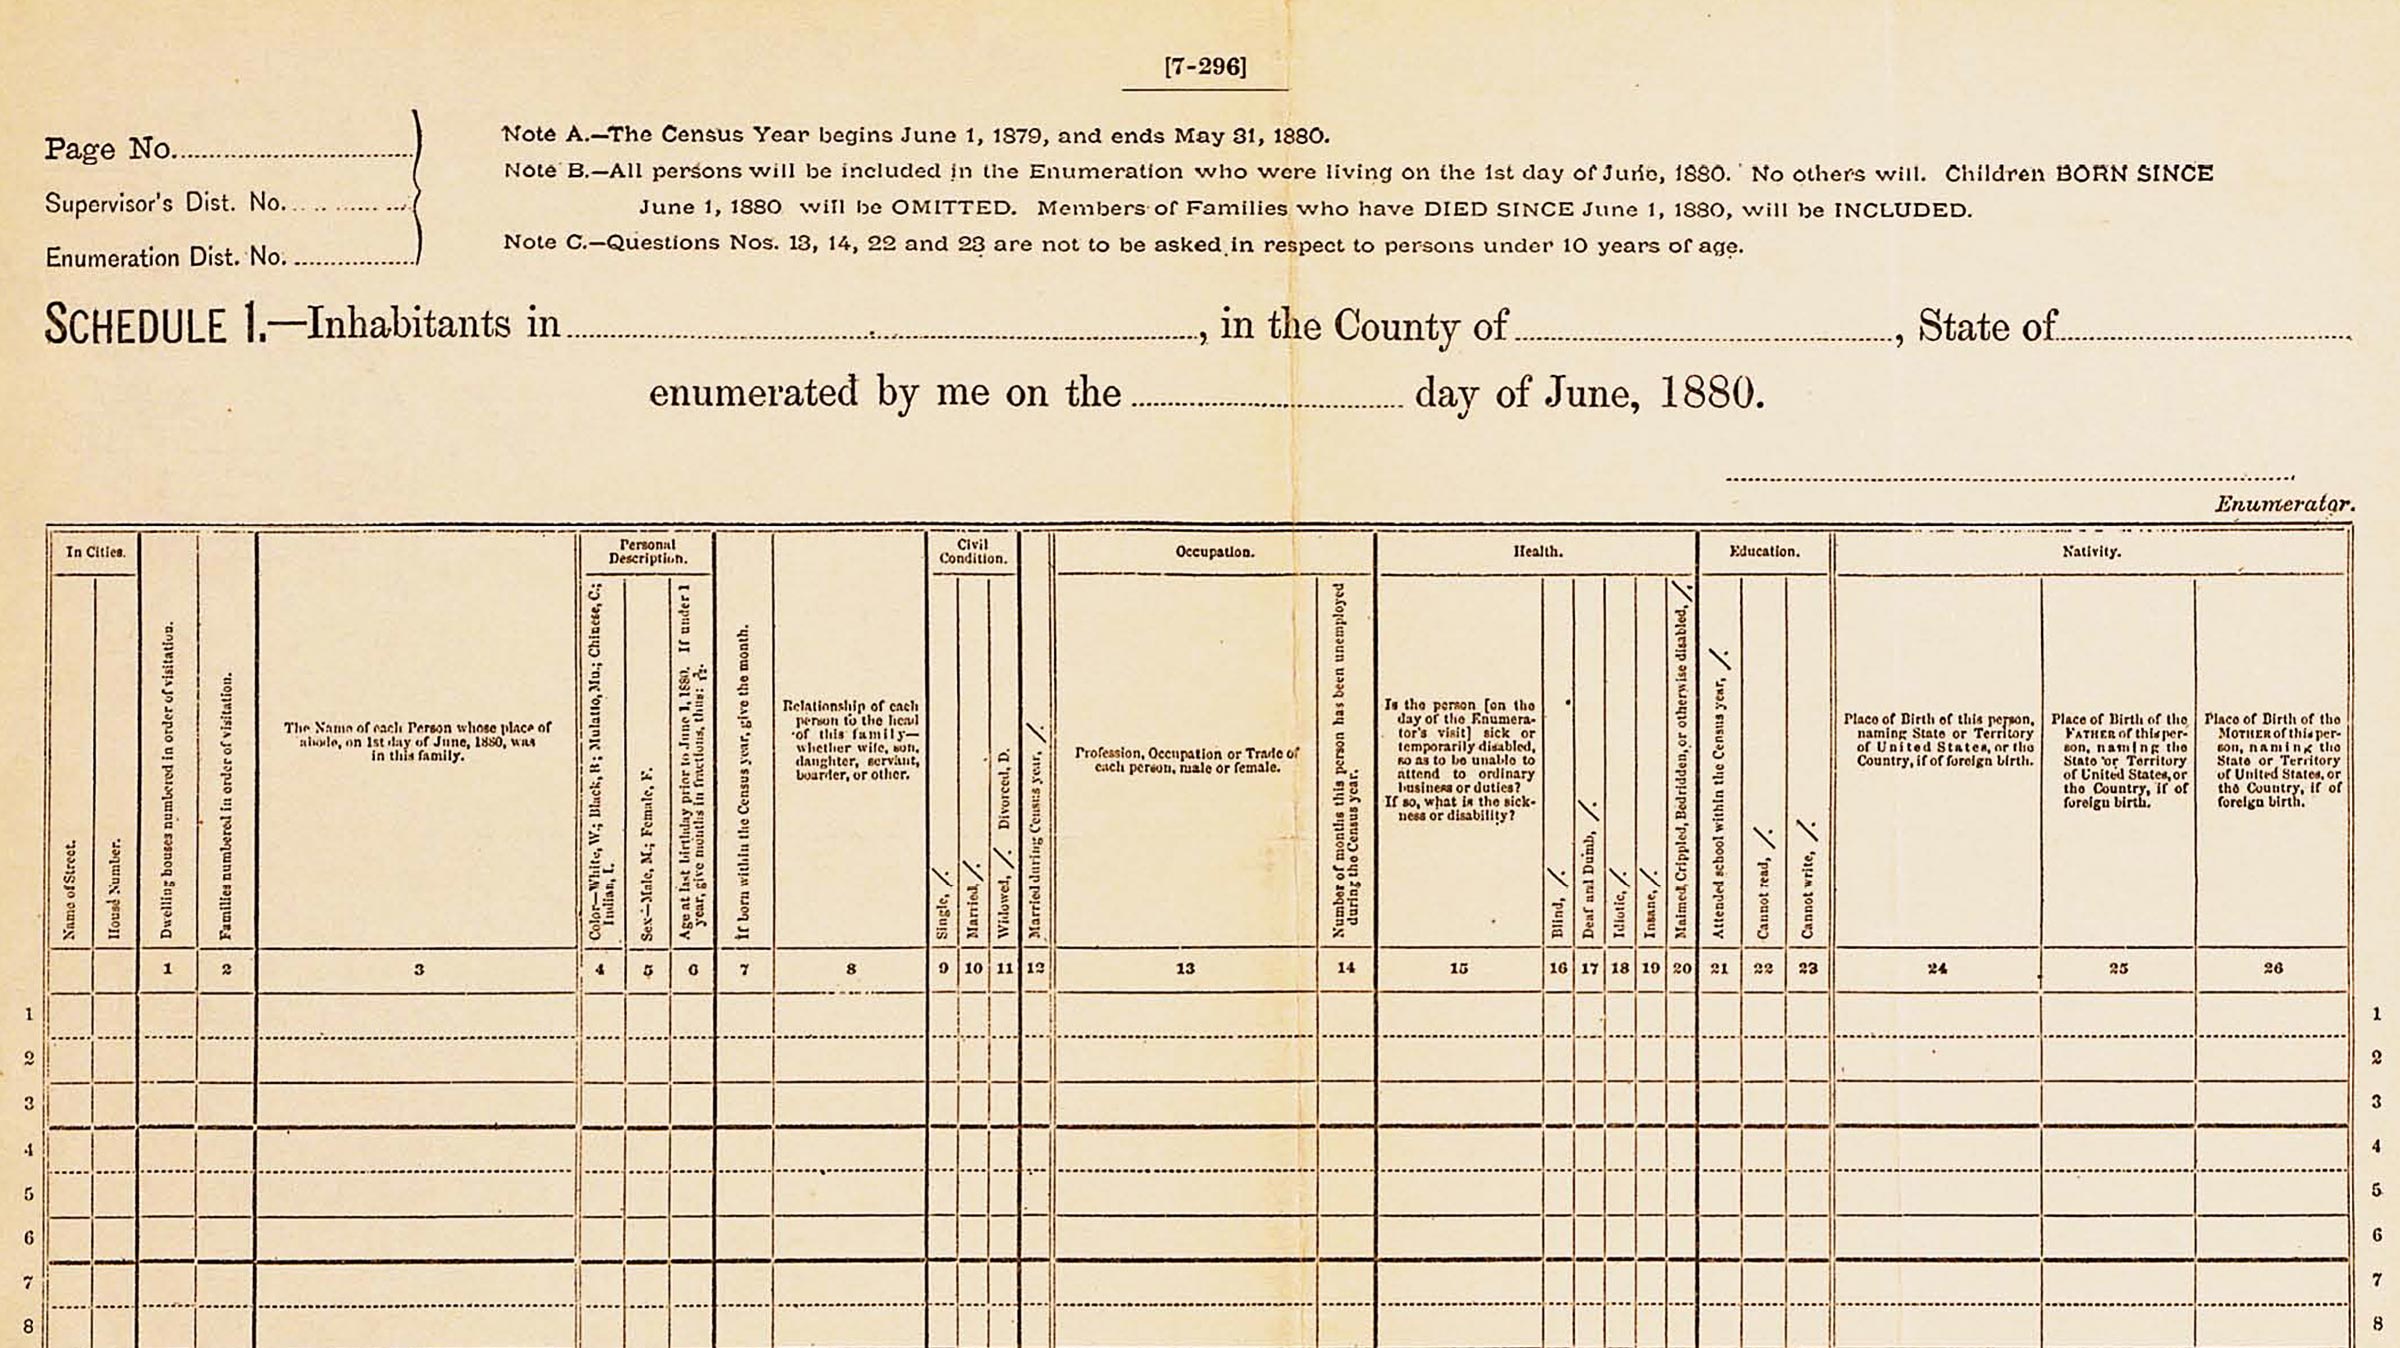 [7-296]
Page No.
Supervisor's Dist. No.
Enumeration Dist. No.
Note A.—The Census Year begins June 1, 1879, and ends May 31, 1880.
Note B.—All persons will be included in the Enumeration who were living on the 1st day of June, 1880. No others will. Children BORN SINCE
June 1, 1880 will be OMITTED. Members of Families who have DIED SINCE June 1, 1880, will be INCLUDED.
Note C.—Questions Nos. 13, 14, 22 and 23 are not to be asked in respect to persons under 10 years of age.
SCHEDULE 1.—Inhabitants in , in the County of , State of
enumerated by me on the day of June, 1880.
Enumerator.
In Cities.
Name of Street.
House Number.
Dwelling houses numbered in order of visitation.
Families numbered in order of visitation.
The Name of each Person whose place of
abode, on 1st day of June, 1880, was
in this family.
Personal
Description.
Color—White, W.; Black, B.; Mulatto, Mu.; Chinese, C.;
Indian, I.
Sex—Male, M.; Female, F.
Age at last birthday prior to June 1, 1880. If under 1
year, give months in fractions, thus:
If born within the Census year, give the month.
Relationship of each
person to the head
of this family—
whether wife, son,
daughter, servant,
boarder, or other.
Civil
Condition.
Single, /.
Married, /.
Widowed, /. Divorced, D.
Married during Census year, /.
Occupation.
Profession, Occupation or Trade of
each person, male or female.
Number of months this person has been unemployed
during the Census year.
Health.
Is the person [on the
day of the Enumera-
tor's visit] sick or
temporarily disabled,
so as to be unable to
attend to ordinary
business or duties?
If so, what is the sick-
ness or disability?
Blind, /.
Deaf and Dumb, /.
Idiotic, /.
Insane, /.
Maimed, Crippled, Bedridden, or otherwise disabled, /.
Education.
Attended school within the Census year, /.
Cannot read, /.
Cannot write, /.
Nativity.
Place of Birth of this person,
naming State or Territory
of United States, or the
Country, if of foreign birth.
Place of Birth of the
FATHER of this per-
son, naming the
State or Territory
of United States, or
the Country, if of
foreign birth.
Place of Birth of the
MOTHER of this per-
son, naming the
State or Territory
of United States, or
the Country, if of
foreign birth.
1 2 3 4 5 6 7 8 9 10 11 12 13 14 15 16 17 18 19 20 21 22 23 24 25 26
1 1
2 2
3 3
4 4
5 5
6 6
7 7
8 8